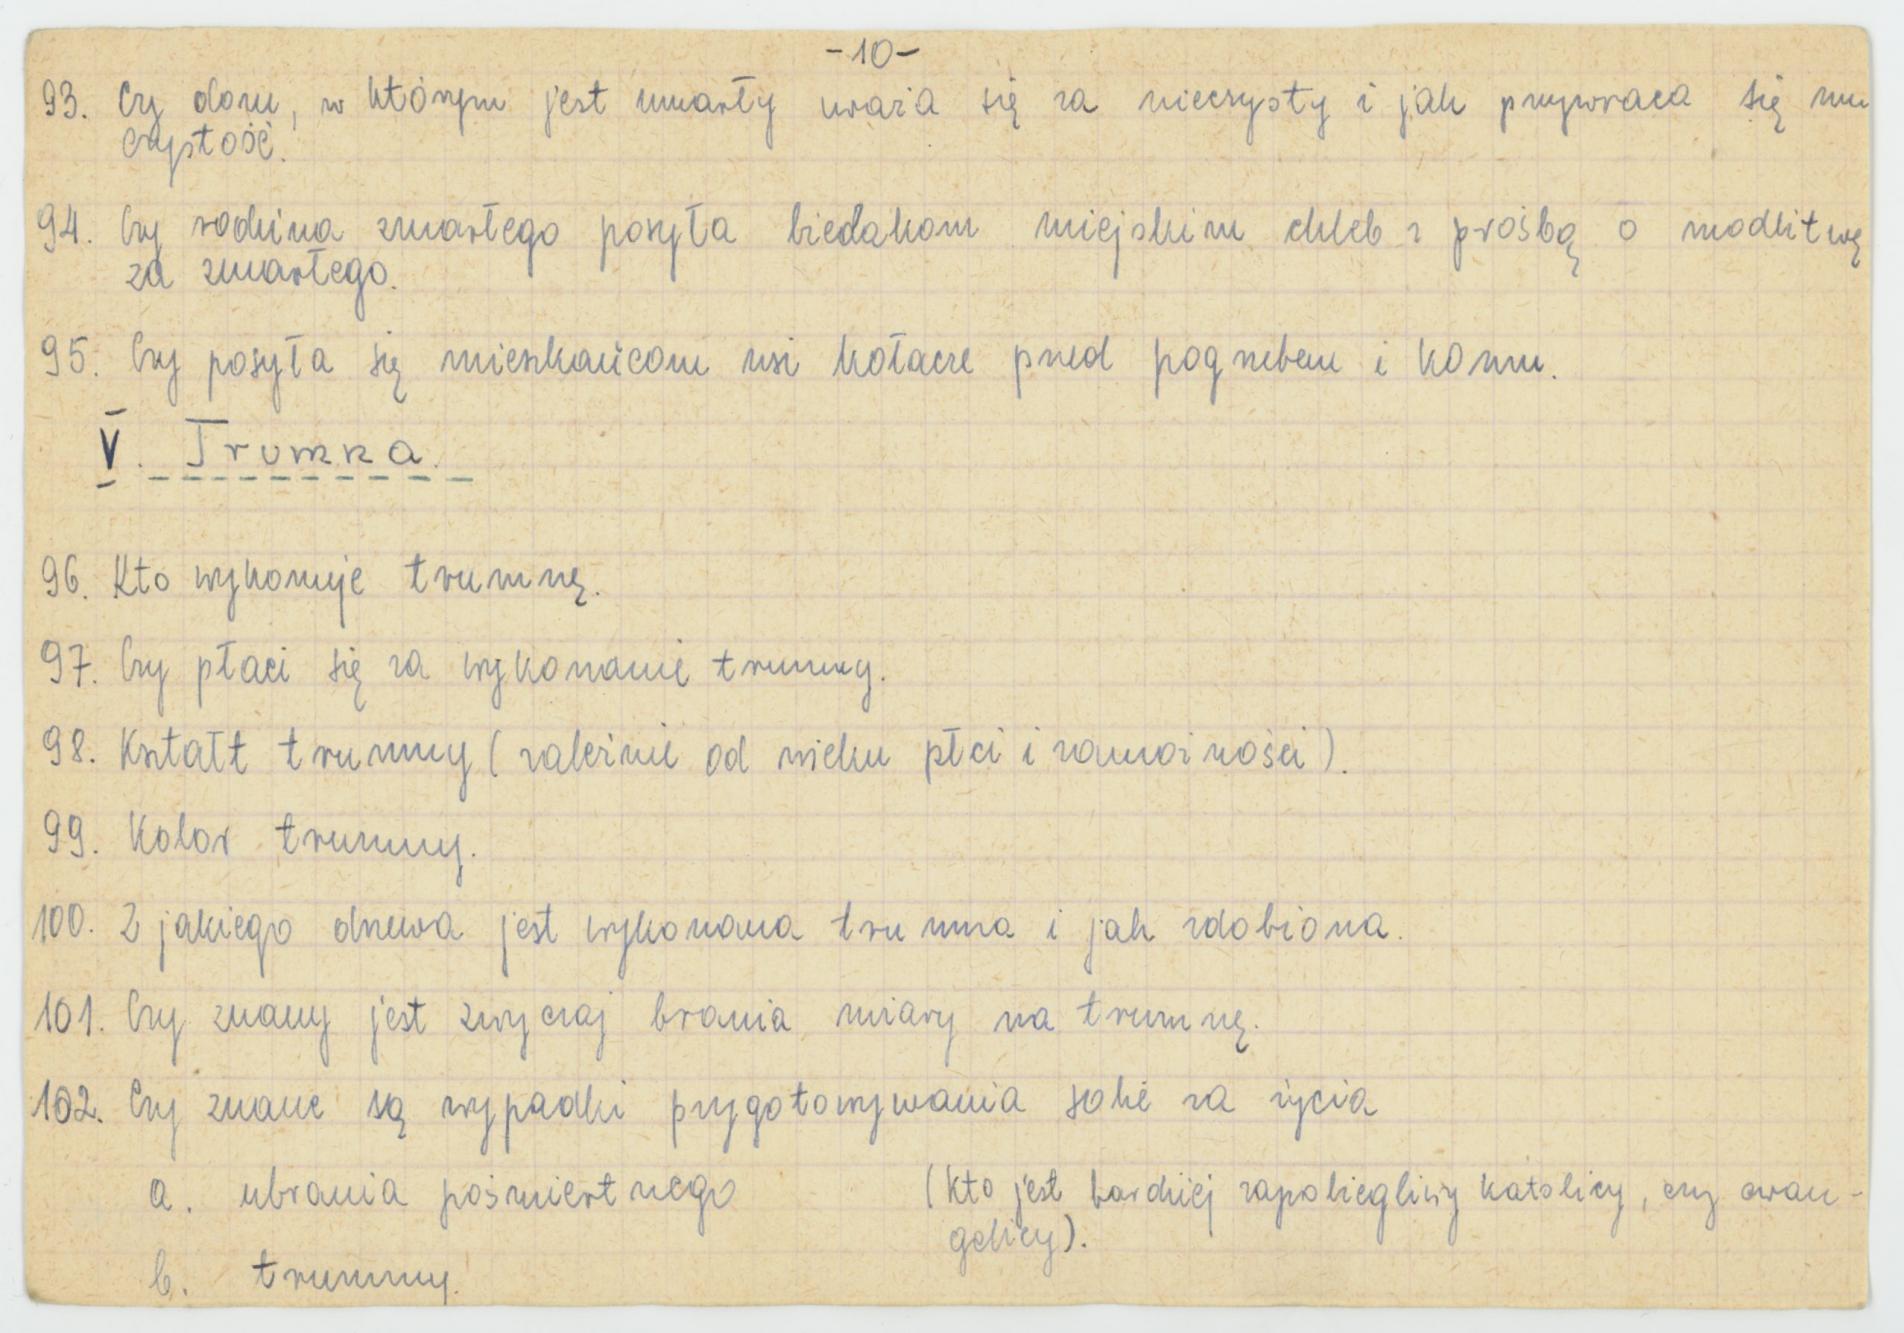 -10-
93. Czy dom, w którym jest umarły uważa się za nieczysty i jak przywraca się mu
czystość.
94. Czy rodzina zmarłego posyła biedakom miejskim chleb z prośbą o modlitwę
za zmarłego.
95. Czy posyła się mieszkańcom wsi kołacze przed pogrzebem i komu.
V. Trumna.
96. Kto wykonuje trumnę.
97. Czy płaci się za wykonanie trumny.
98. Kształt trumny (zależnie od wieku płci i zamożności).
99. Kolor trumny.
100. Z jakiego drzewa jest wykonana trumna i jak zdobiona.
101. Czy znany jest zwyczaj brania miary na trumnę.
102. Czy znane są wypadki przygotowywania sobie za życia
a. ubrania pośmiertnego (kto jest bardziej zapobiegliwy katolicy, czy ewan-
gelicy).
b. trumny.